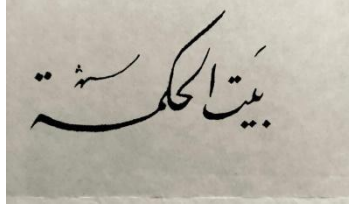 بيت الحكمة